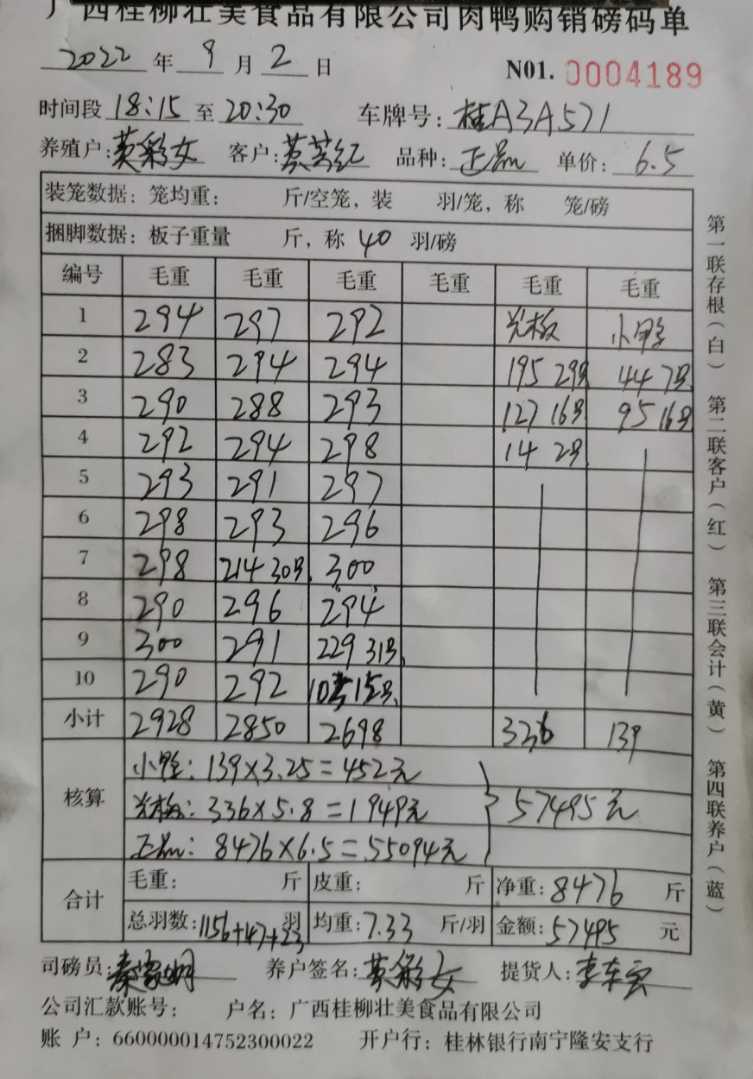 广西桂柳壮美食品有限公司肉鸭购销磅码单
2022 年 9 月 2 日 N01. 0004189
时间段 18:15 至 20:30 车牌号: 桂A3A571
养殖户: 莫彩女 客户: 品种: 正品 单价: 6.5
装笼数据: 笼均重: 斤/空笼, 装 羽/笼, 称 笼/磅
捆脚数据: 板子重量 斤, 称 40 羽/磅
编号 毛重 毛重 毛重 毛重 毛重 毛重
1 294 297 292 光板 小鸭
2 283 294 294 195 29只 44 7只
3 290 288 293 127 16只 95 16只
4 292 294 298 14 2只
5 293 291 297
6 298 293 296
7 298 214 30只 300
8 290 296 294
9 300 291 229 31只
10 290 292 15只
小计 2928 2850 2698 336 139
核算
小鸭: 139×3.25=452元
光板: 336×5.8=1949元
正品: 8476×6.5=55094元
57495元
合计
毛重: 斤 皮重: 斤 净重: 8476 斤
总羽数: 1156+47+23 羽 均重: 7.33 斤/羽 金额: 57495 元
司磅员: 养户签名: 莫彩女 提货人:
公司汇款账号: 户名: 广西桂柳壮美食品有限公司
账 户: 660000014752300022 开户行: 桂林银行南宁隆安支行
第一联存根(白) 第二联客户(红) 第三联会计(黄) 第四联养户(蓝)